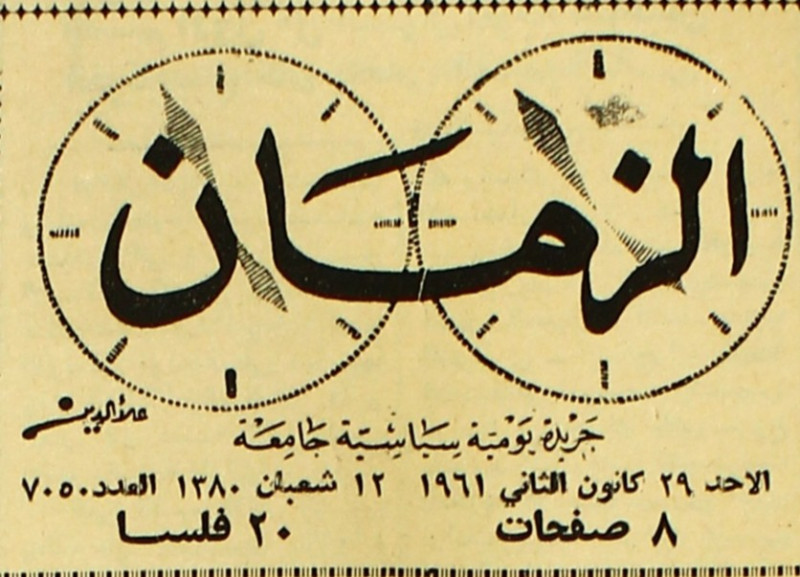 الزمان
علاءالدين
جريدة يومية سياسية جامعة
الاحد ٢٩ كانون الثاني ١٩٦١ ١٢ شعبان ١٣٨٠ العدد ٧٠٥٠
٨ صفحات ٢٠ فلسا